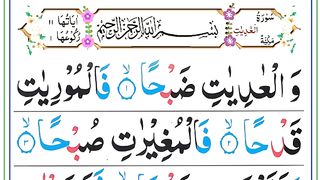 سُوْرَةُ الْعٰدِيٰتِ مَكِّيَّةٌ
بِسْمِ اللّٰهِ الرَّحْمٰنِ الرَّحِيْمِ
اٰيَاتُهَا ١١ رُكُوْعُهَا ١
وَ الْعٰدِيٰتِ ضَبْحًا ۙ﴿١﴾ فَالْمُوْرِيٰتِ
قَدْحًا ۙ﴿٢﴾ فَالْمُغِيْرٰتِ صُبْحًا ۙ﴿٣﴾